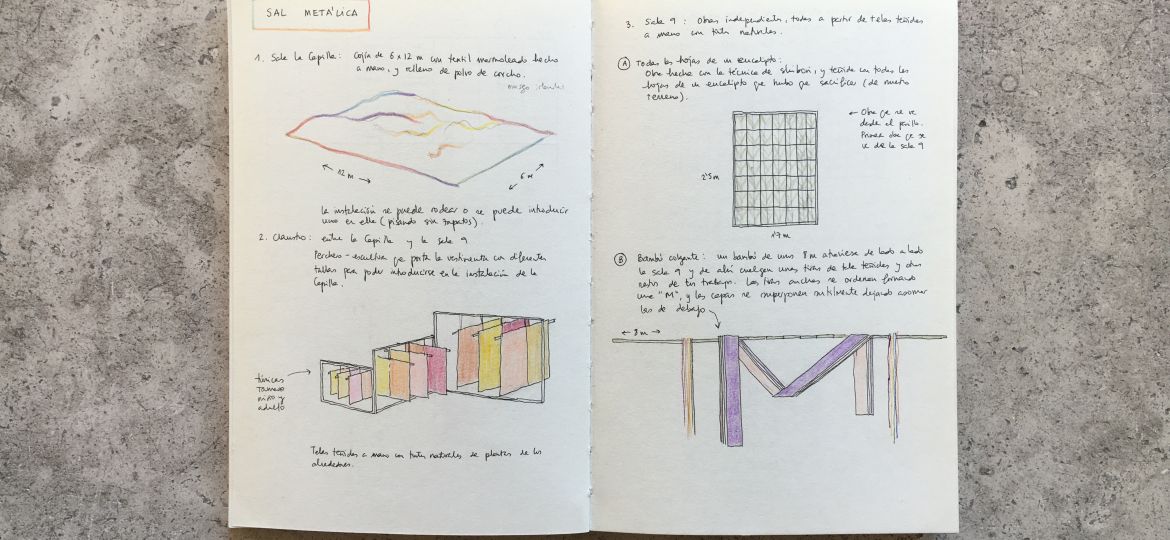 SAL METÁLICA
1. Sala la Capilla: Cojín de 6x12 m con textil marmoleado hecho
a mano, y relleno de polvo de corcho.
12 m
6 m
La instalación se puede rodear o se puede introducir
uno en ella (pisando sin zapatos).
2. Claustro: entre la Capilla y la sala 9
Perchero-escultura que porta la vestimenta con diferentes
tallas para poder introducirse en la instalación de la
Capilla.
túnicas
tamaño
niño y
adulto
Telas teñidas a mano con tintes naturales de plantas de los
alrededores.
3. Sala 9: Obras independientes, todas a partir de telas teñidas
a mano con tintes naturales.
A Todas las hojas de un eucalipto:
Obra hecha con la técnica de shibori, y teñida con todas las
hojas de un eucalipto que hubo que sacrificar (de nuestro
terreno).
Obra que se ve
desde el pasillo.
Primera obra que se
ve de la sala 9
2'5 m
1'7 m
B Bambú colgante: un bambú de unos 8 m atraviesa de lado a lado
la sala 9 y de ahí cuelgan unas tiras de tela teñidas y otros
restos de mi trabajo. Las tiras anchas se ordenan formando
una "M", y las capas se superponen sutilmente dejando asomar
las de debajo
8 m